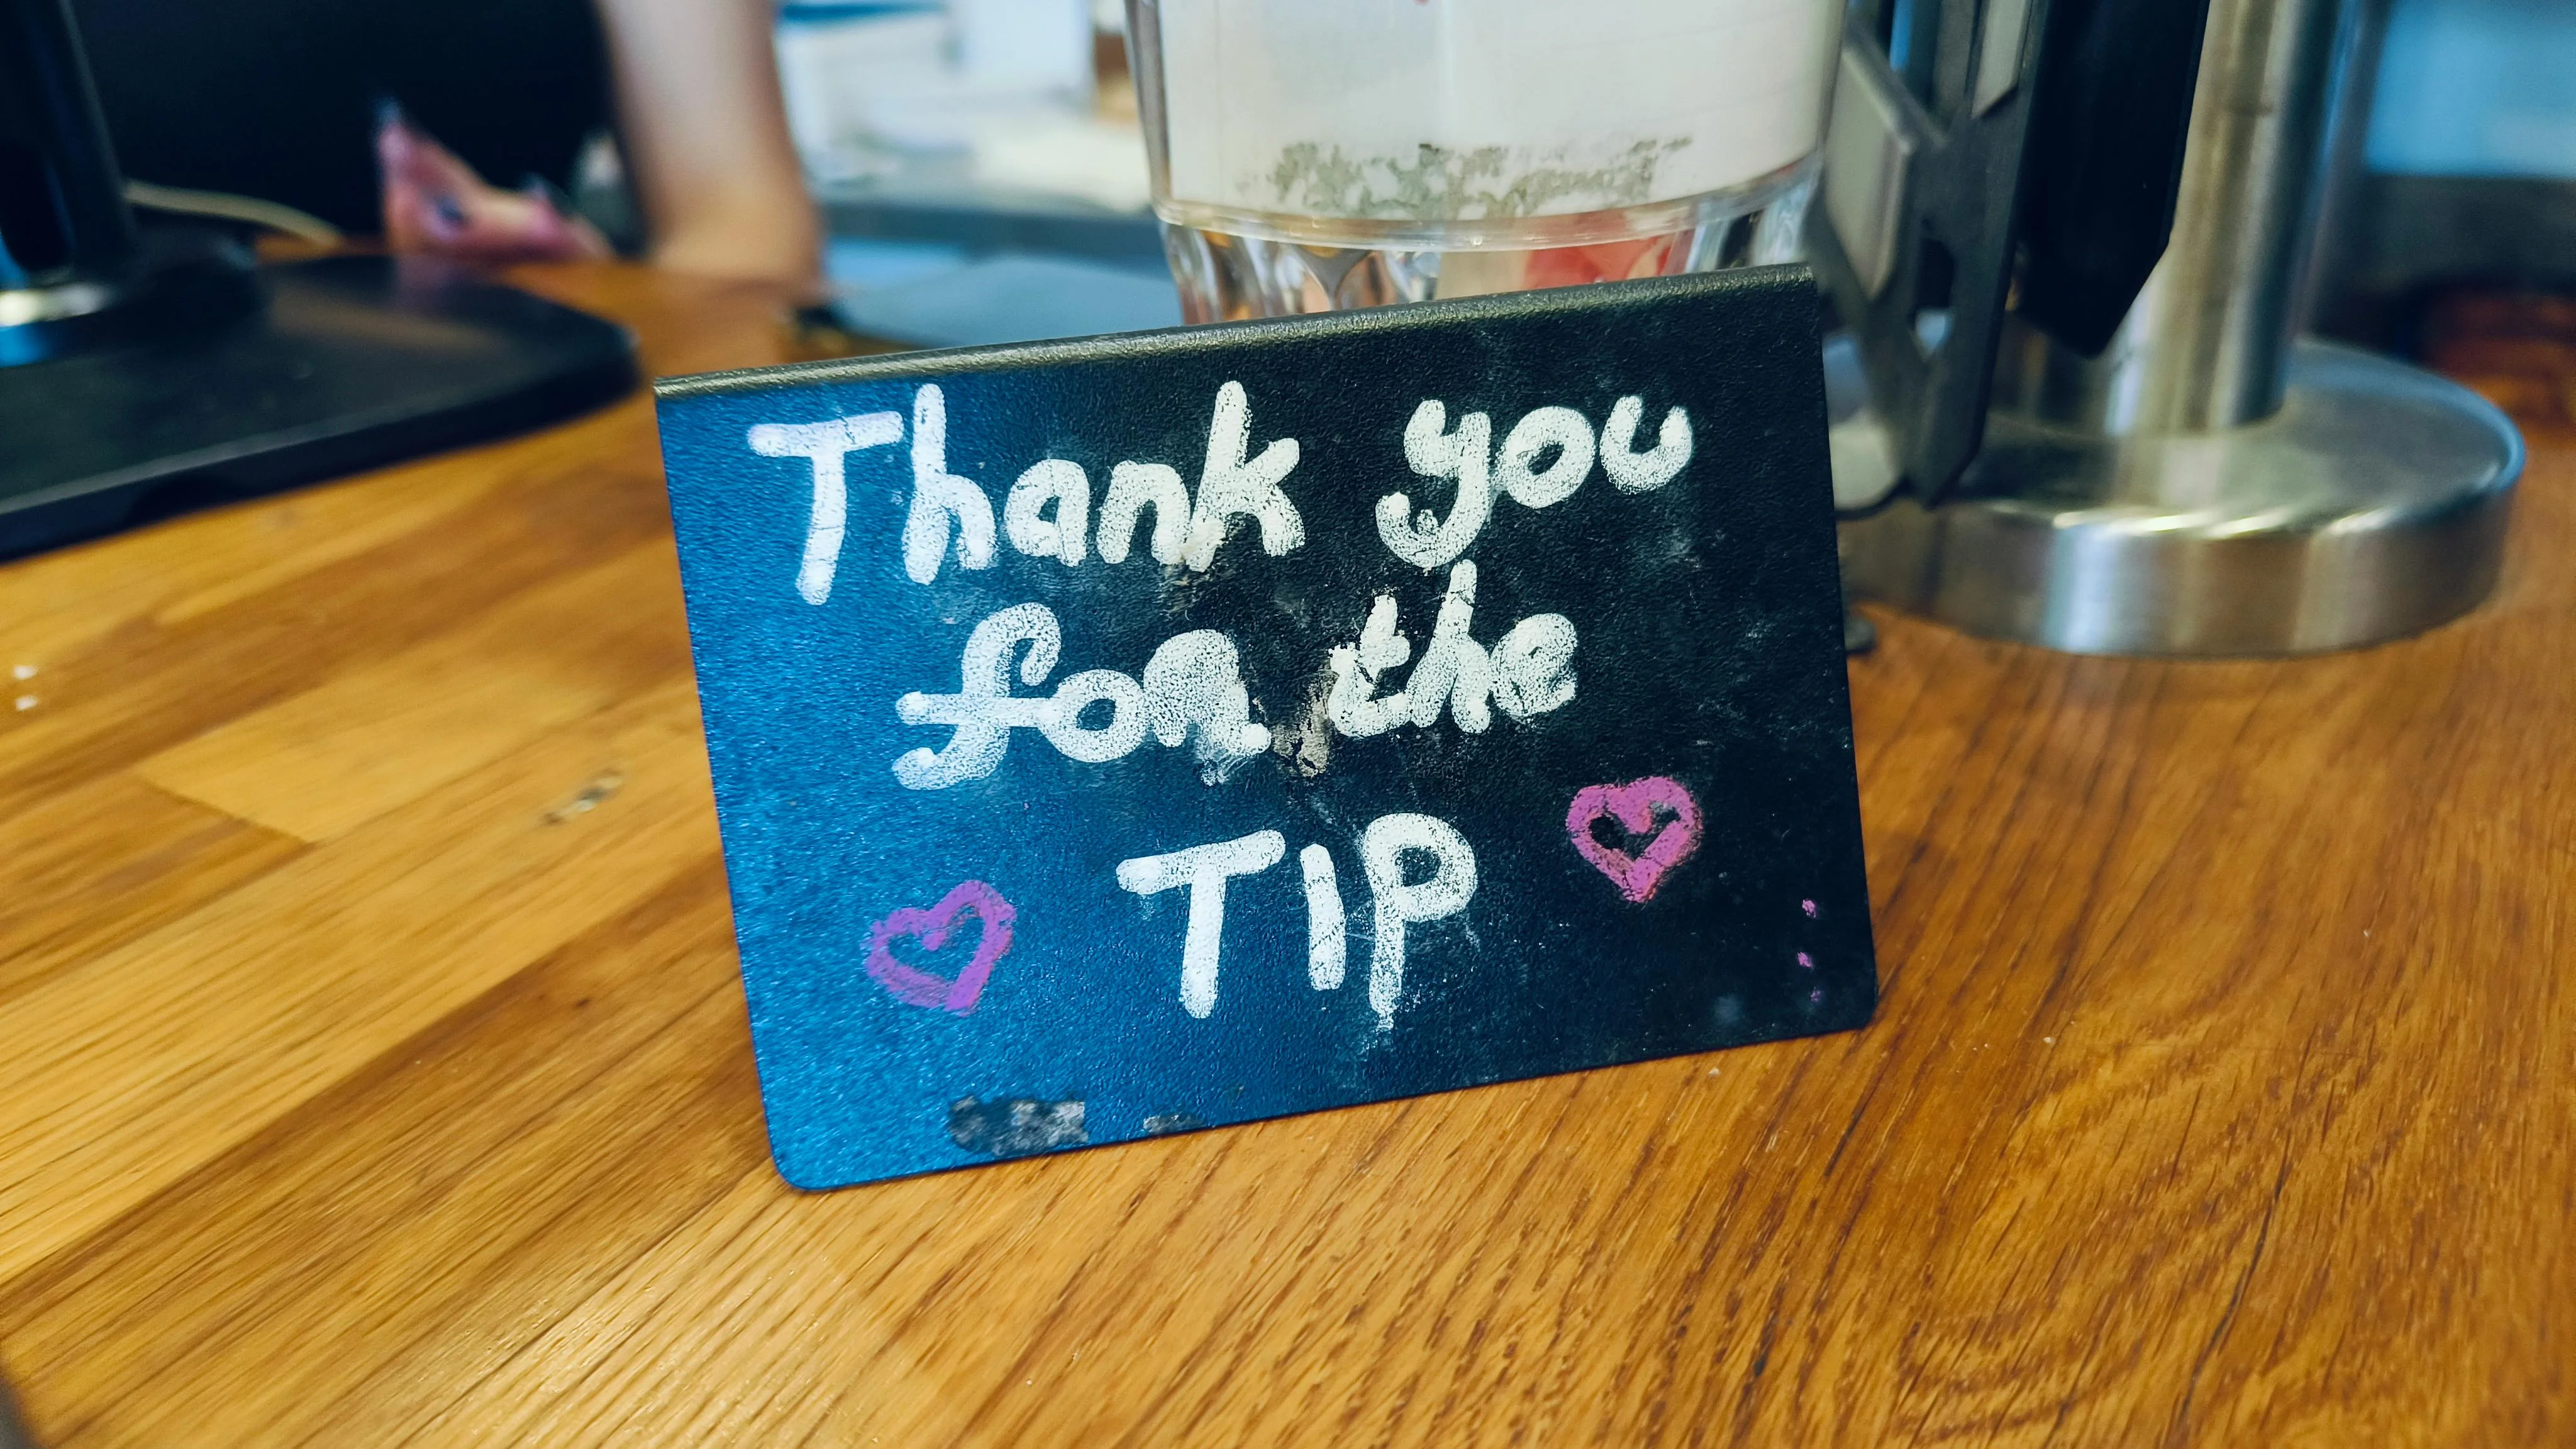 Thank you
for the
TIP